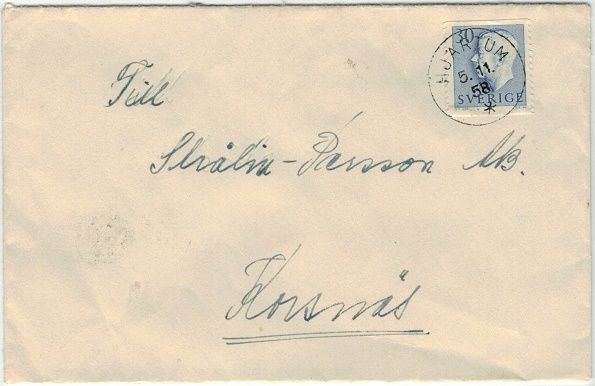 30
HJÄRTUM
5.11.
58
SVERIGE
Till
Strålin-Persson Ab.
Korsnäs